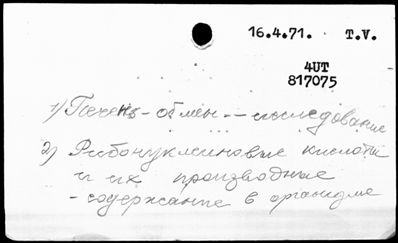 16.4.71. T.V.
4UT
817075
1) Печень - обмен -- исследование
2) Рибонуклеиновые кислоты
и их производные
- содержание в организме